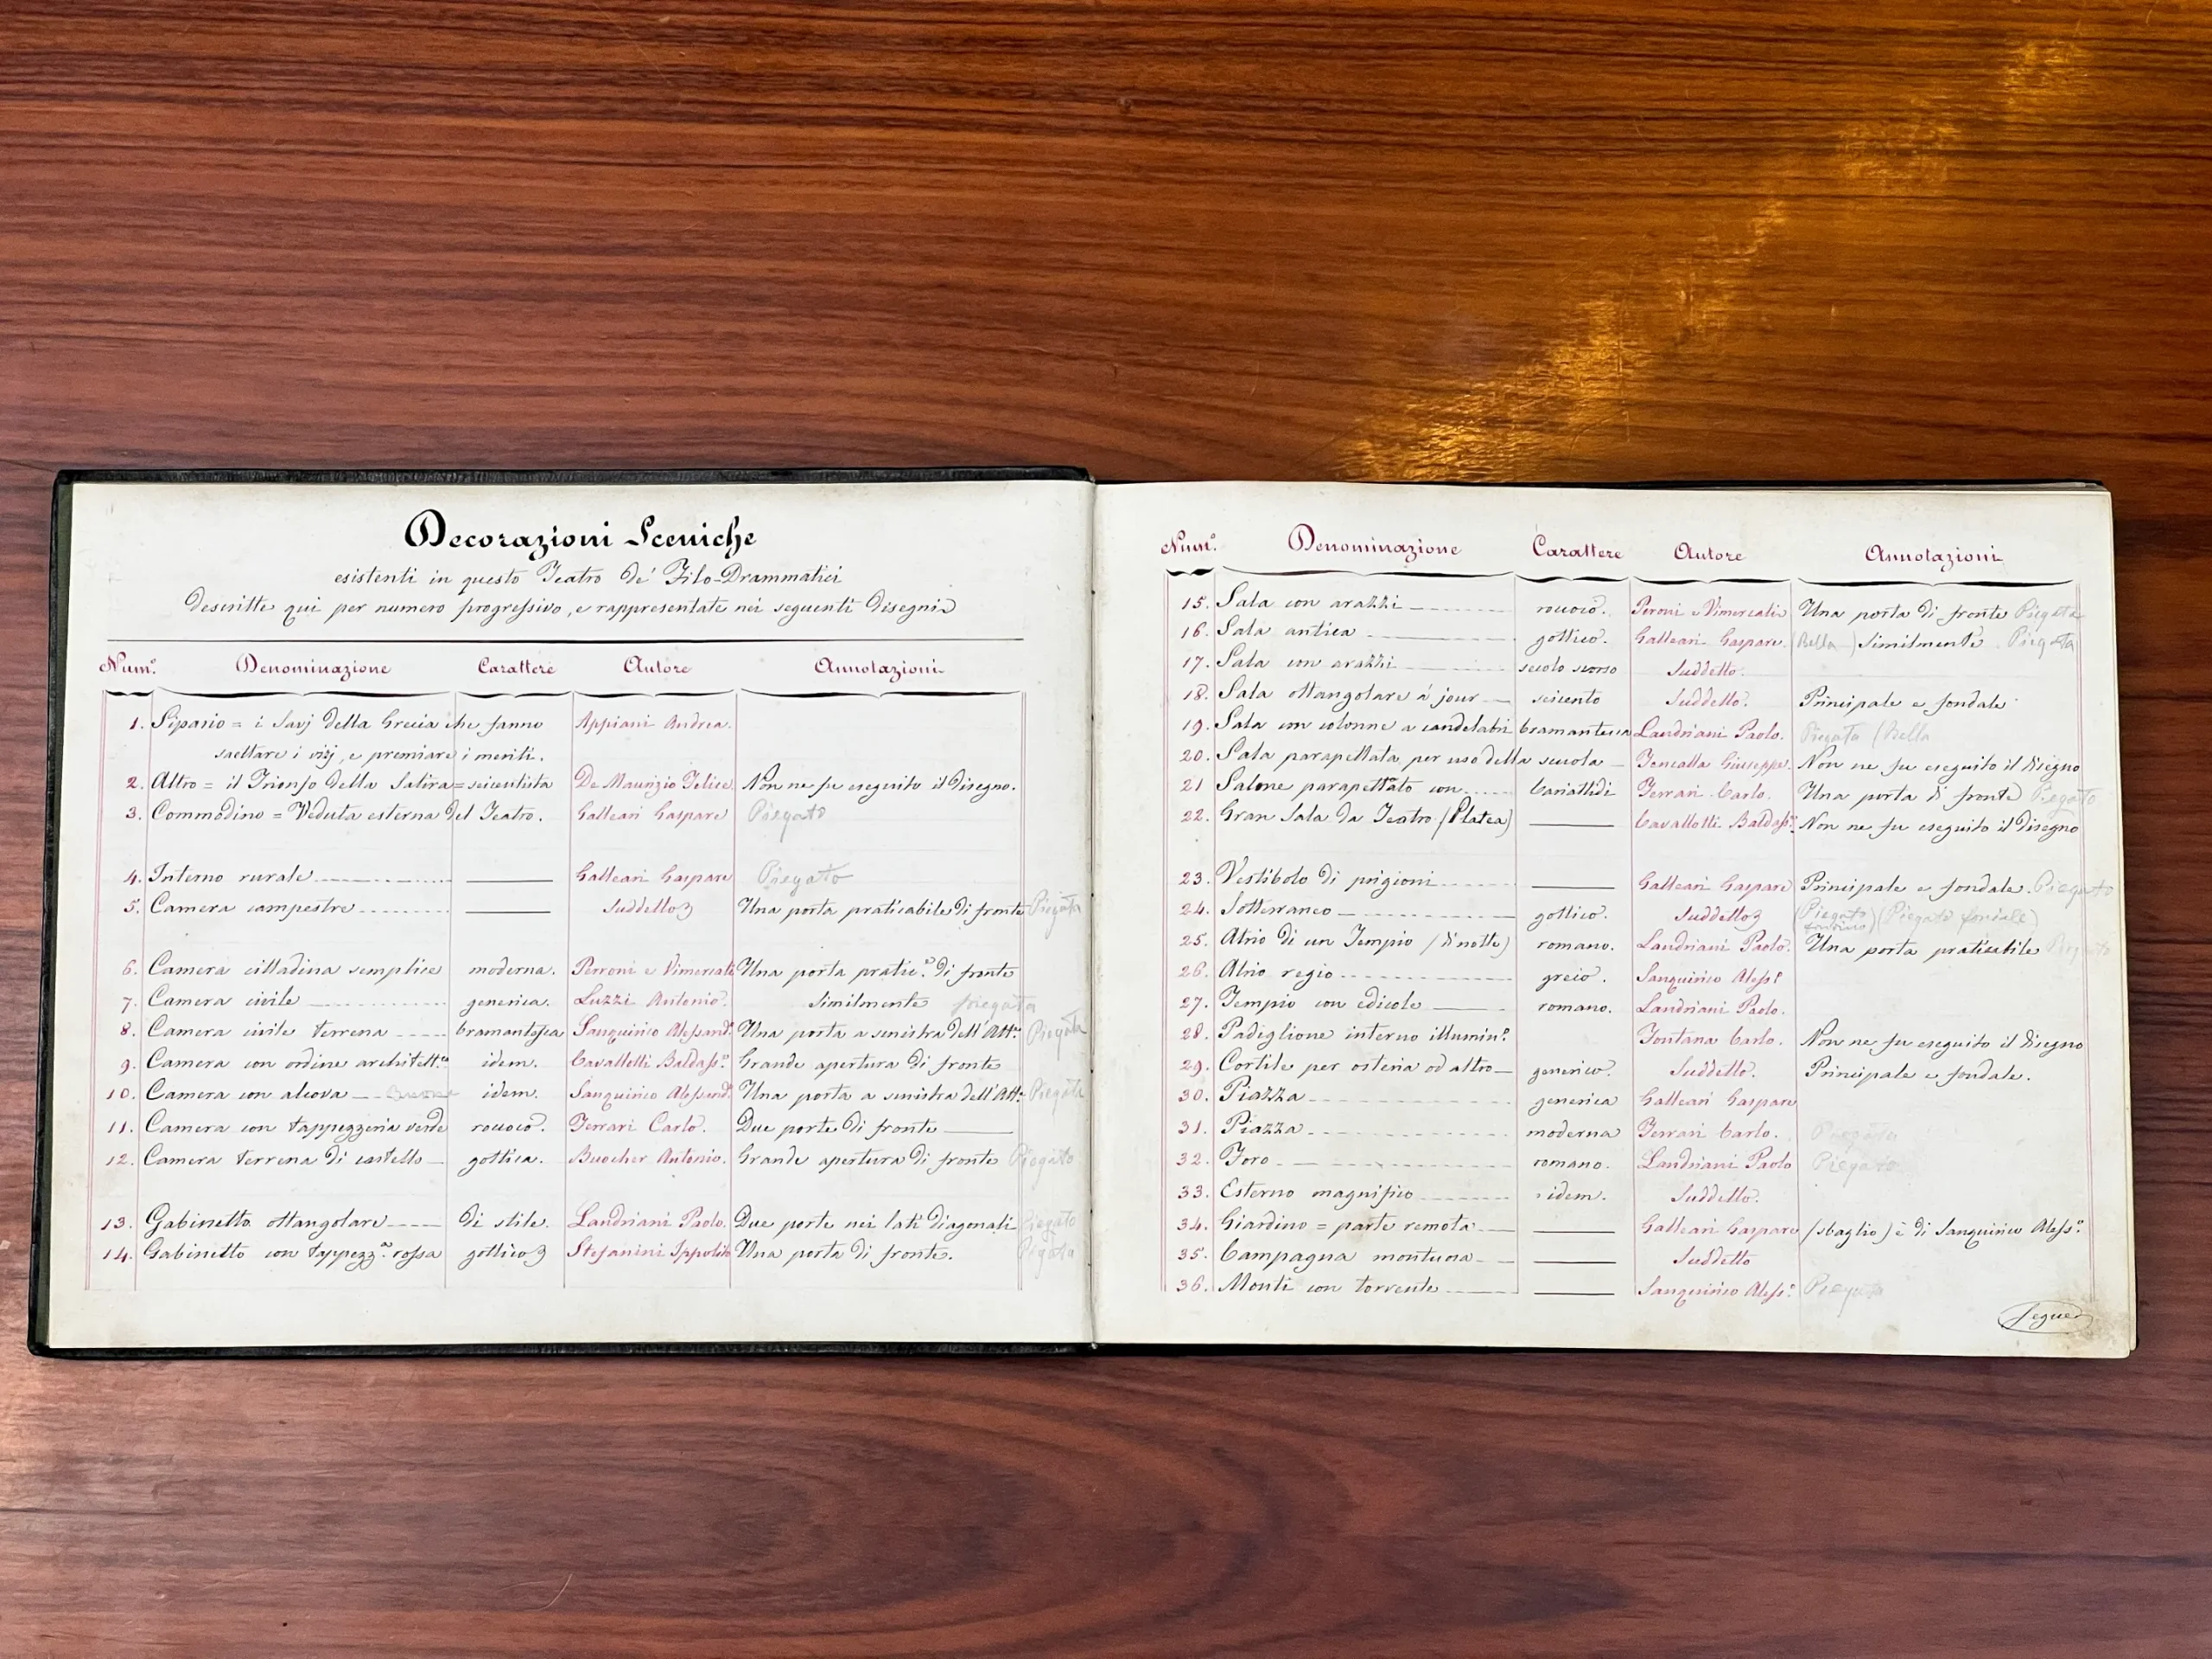 Decorazioni Sceniche
esistenti in questo Teatro de' Filo-Drammatici
descritte qui per numero progressivo, e rappresentate nei seguenti disegni
Num.º Denominazione Carattere Autore Annotazioni
1. Sipario = i Savj della Grecia che fanno Appiani Andrea.
saettare i vizj, e premiare i meriti.
2. Altro = il Trionfo della Satira = seicentista De Maurizio Felice. Non ne fu eseguito il disegno.
3. Commodino = Veduta esterna del Teatro. Galleari Gaspare Piegato
4. Interno rurale Galleari Gaspare Piegato
5. Camera campestre Suddetto Una porta praticabile di fronte Piegata
6. Camera cittadina semplice moderna. Perroni e Vimercati Una porta pratic.e di fronte
7. Camera civile generica. Luzzi Antonio. Similmente piegata
8. Camera civile terrena bramantesca Sanquirico Alessand.º Una porta a sinistra dell'Att.e Piegata
9. Camera con ordine architett.co idem. Cavallotti Baldass.e Grande apertura di fronte
10. Camera con alcova idem. Sanquirico Alessand.º Una porta a sinistra dell'Att.e Piegata
11. Camera con tappezzeria verde rococò. Ferrari Carlo. Due porte di fronte
12. Camera terrena di castello gottica. Buocher Antonio. Grande apertura di fronte Piegato
13. Gabinetto ottangolare di stile. Landriani Paolo. Due porte nei lati diagonali Piegato
14. Gabinetto con tappezz.a rossa gottico Stefanini Ippolito Una porta di fronte. Piegata
Num.º Denominazione Carattere Autore Annotazioni
15. Sala con arazzi rococò. Peroni e Vimercati Una porta di fronte Piegata
16. Sala antica gottico. Galleari Gaspare. (Bella) Similmente. Piegata
17. Sala con arazzi secolo scorso Suddetto.
18. Sala ottangolare à jour seicento Suddetto. Principale e fondale
19. Sala con colonne a candelabri bramantesca Landriani Paolo. Piegata (Bella
20. Sala parapettata per uso della scuola Fencalla Giuseppe. Non ne fu eseguito il disegno
21 Salone parapettato con Cariattidi Ferrari Carlo. Una porta di fronte Piegato
22. Gran Sala da Teatro (Platea) Cavallotti Baldass.e Non ne fu eseguito il disegno
23. Vestibolo di prigioni Galleari Gaspare Principale e fondale. Piegato
24. Sotterraneo gottico. Suddetto (Piegato) (Piegato fondale)
25. Atrio di un Tempio (di notte) romano. Landriani Paolo. Una porta praticabile Piegato
26. Atrio regio greco. Sanquirico Aless.º
27. Tempio con edicole romano. Landriani Paolo.
28. Padiglione interno illumin.º Fontana Carlo. Non ne fu eseguito il disegno
29. Cortile per osteria od altro generico. Suddetto. Principale e fondale.
30. Piazza generica Galleari Gaspare
31. Piazza moderna Ferrari Carlo. Piegata
32. Foro romano. Landriani Paolo Piegato
33. Esterno magnifico idem. Suddetto.
34. Giardino = parte remota Galleari Gaspare (sbaglio) è di Sanquirico Aless.º
35. Campagna montuosa Suddetto
36. Monti con torrente Sanquirico Aless.º Piegata
Segue